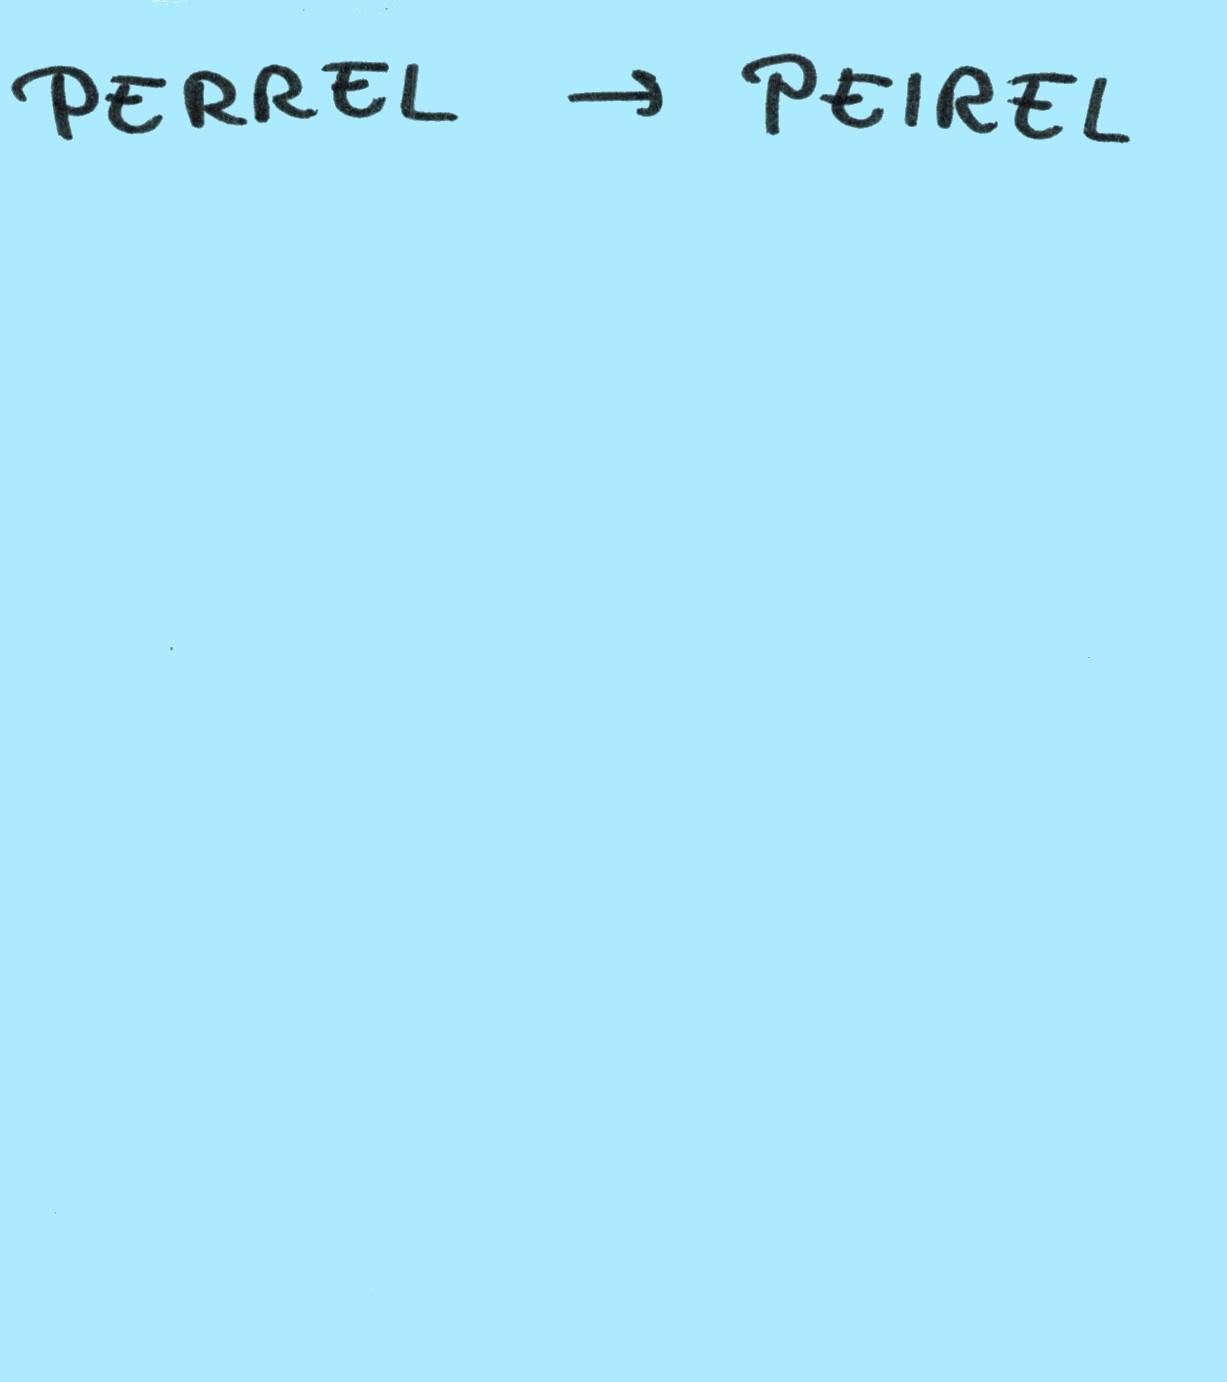 PERREL → PEIREL